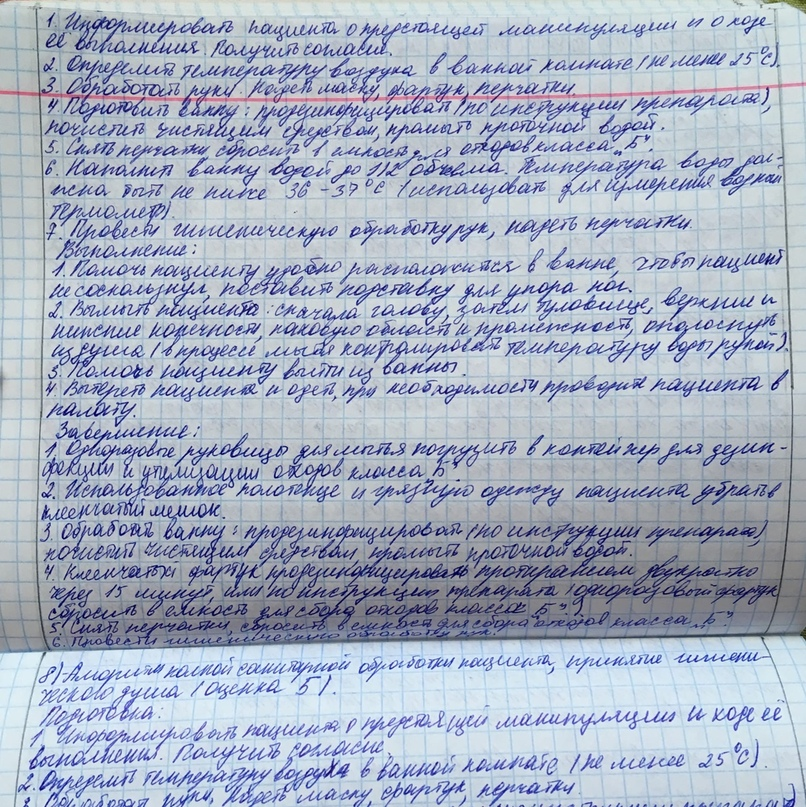 1. Информировать пациента о предстоящей манипуляции и о ходе
её выполнения. Получить согласие.
2. Определить температуру воздуха в ванной комнате (не менее 25°С).
3. Обработать руки. Надеть маску, фартук, перчатки.
4. Подготовить ванну: продезинфицировать (по инструкции препарата),
почистить чистящим средством, промыть проточной водой.
5. Снять перчатки сбросить в емкость для отходов класса „Б".
6. Наполнить ванну водой до 1/2 объема. Температура воды дол-
жна быть не ниже 36-37°С (использовать для измерения водный
термометр).
7. Провести гигиеническую обработку рук, надеть перчатки.
Выполнение:
1. Помочь пациенту удобно расположится в ванне, чтобы пациент
не соскользнул, поставить подставку для упора ног.
2. Вымыть пациента: сначала голову, затем туловище, верхние и
нижние конечности, паховую область и промежность, ополоснуть
из душа (в процессе мытья контролировать температуру воды рукой).
3. Помочь пациенту выйти из ванны.
4. Вытереть пациента и одеть, при необходимости проводить пациента в
палату.
Завершение:
1. Одноразовые руковицы для мытья погрузить в контейнер для дезин-
фекции и утилизации отходов класса „Б".
2. Использованное полотенце и грязную одежду пациента убрать в
клеенчатый мешок.
3. Обработать ванну: продезинфицировать (по инструкции препарата)
почистить чистящим средством промыть проточной водой.
4. Клеенчатый фартук продезинфицировать протиранием двукратно
через 15 минут, или по инструкции препарата (одноразовый фартук
сбросить в емкость для сбора отходов класса „Б").
5. Снять перчатки, сбросить в емкость для сбора отходов класса „Б".
6. Провести гигиеническую обработку рук.
8) Алгоритм полной санитарной обработки пациента, принятие гигиени-
ческого душа (оценка 5).
Подготовка:
1. Информировать пациента о предстоящей манипуляции и ходе её
выполнения. Получить согласие.
2. Определить температуру воздуха в ванной комнате (не менее 25°С).
3. Обработать руки, надеть маску, фартук, перчатки